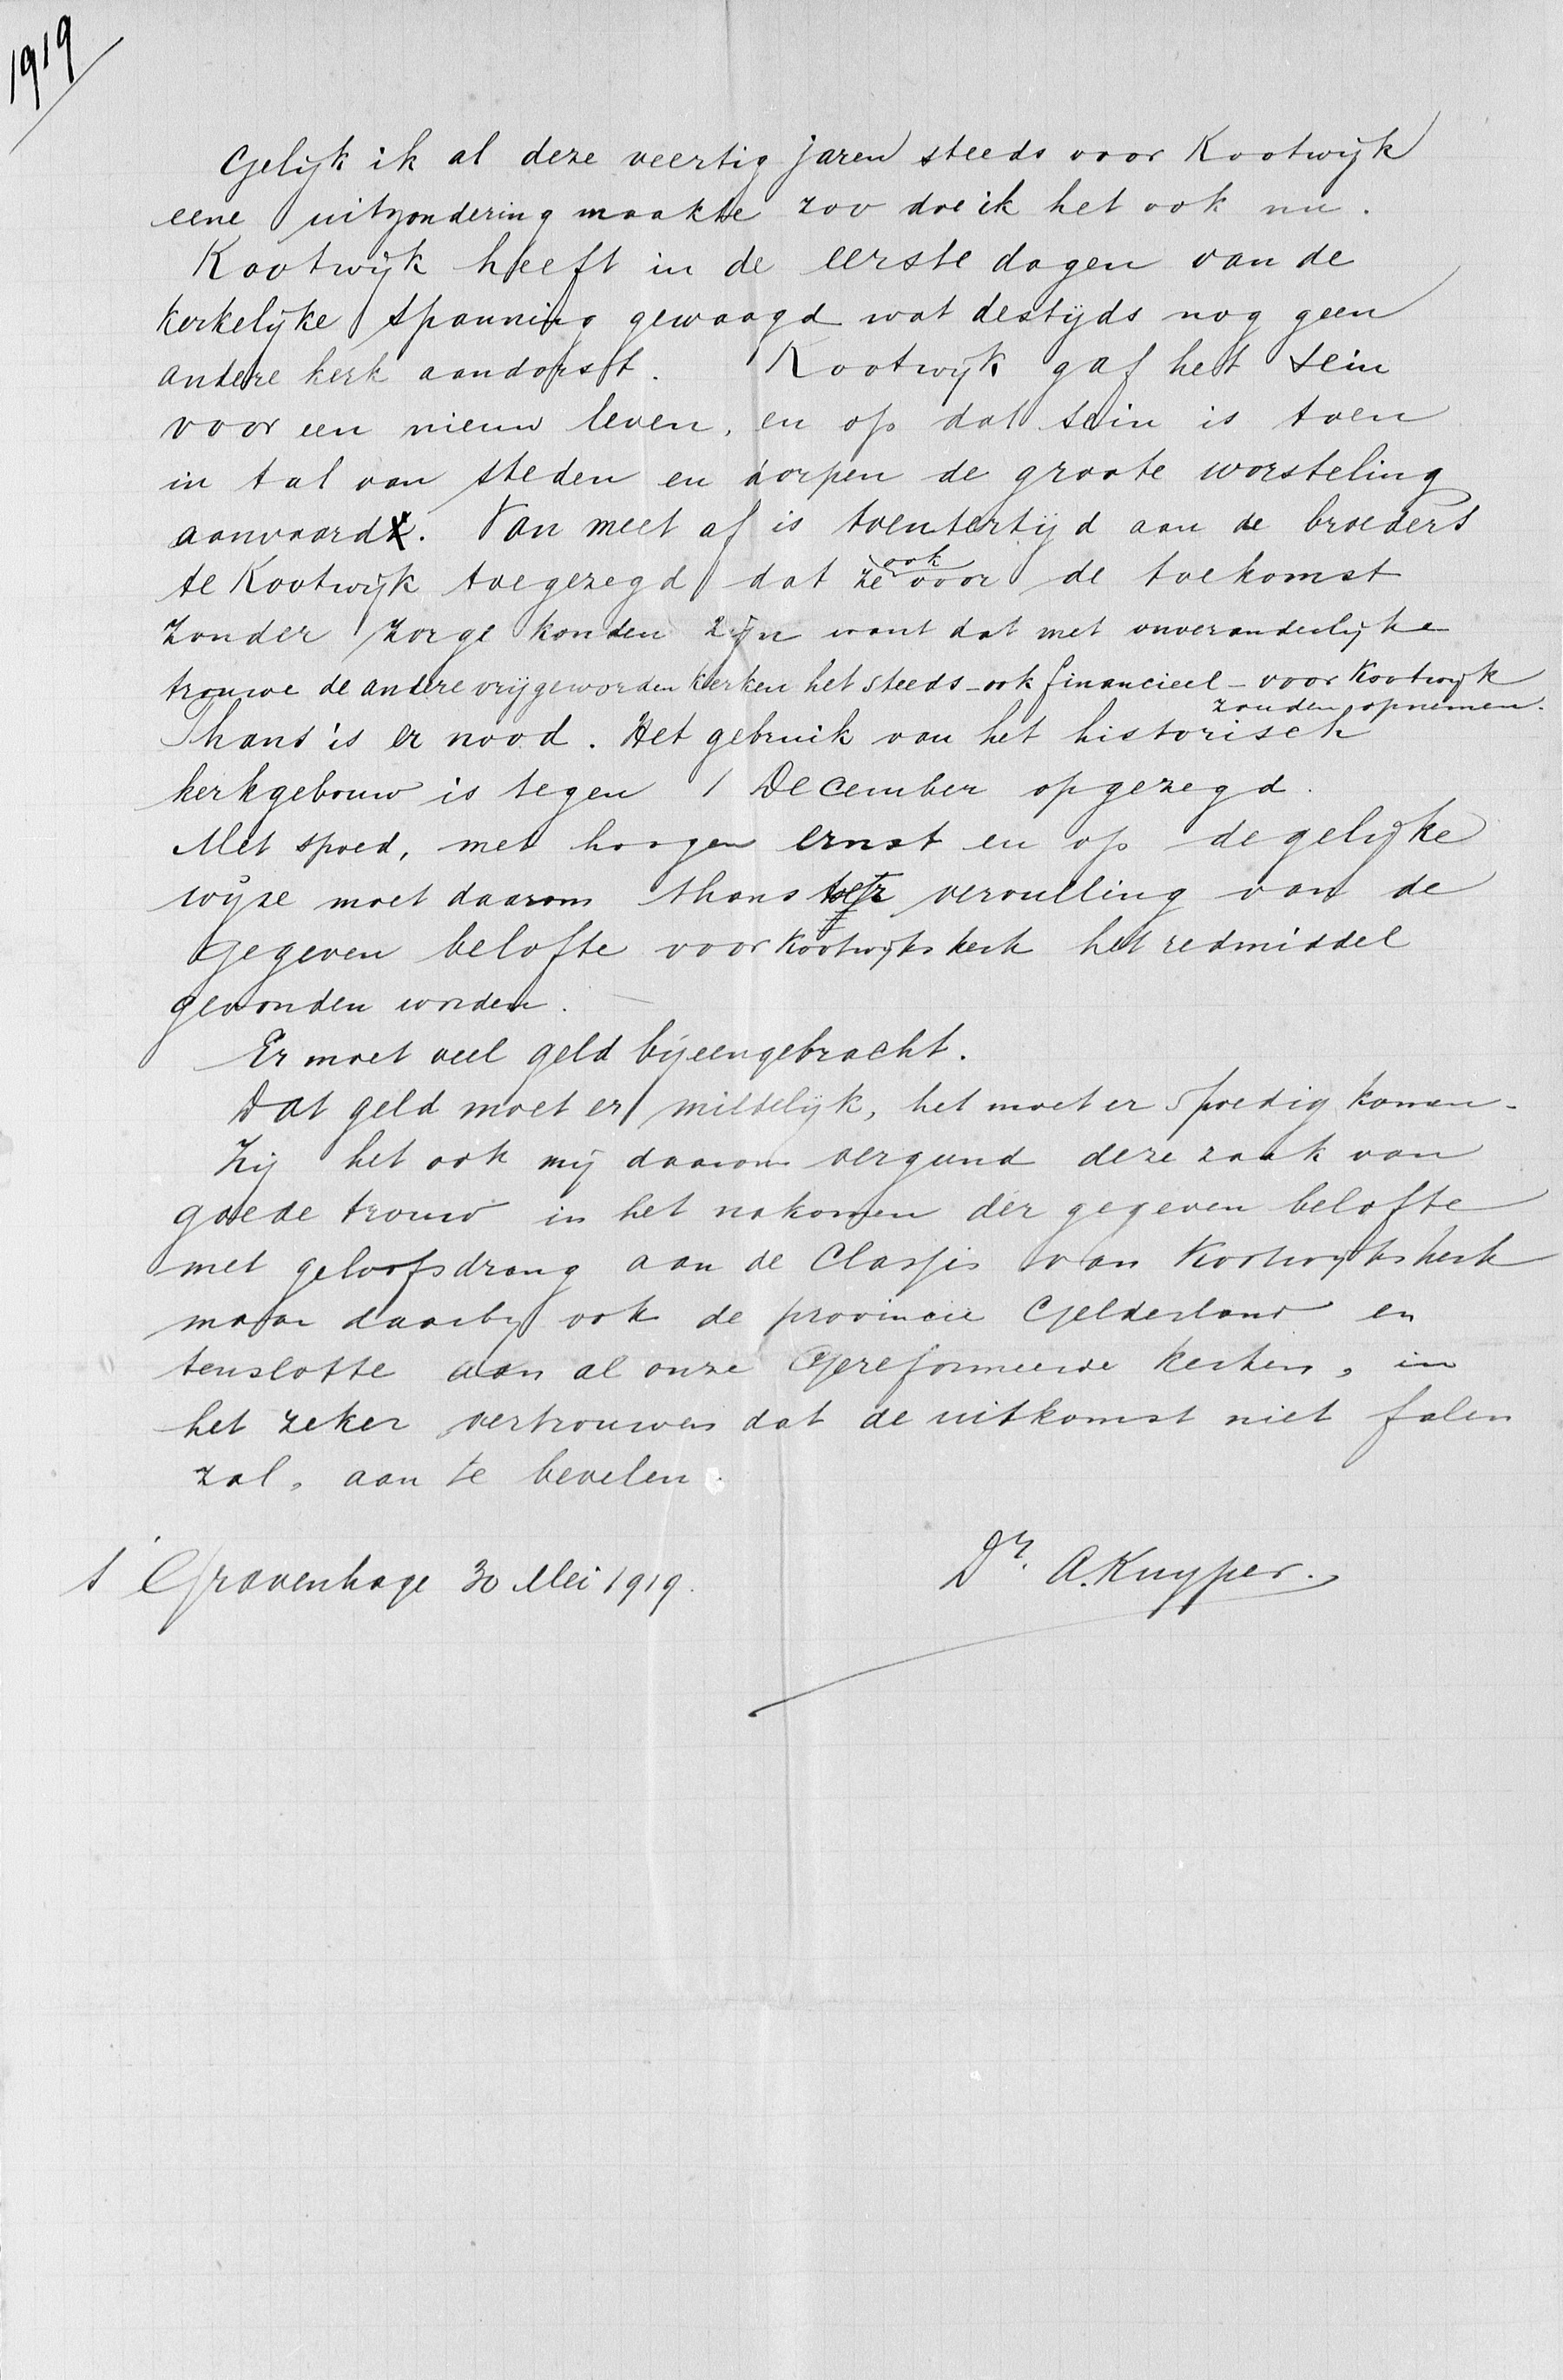 1919
Gelijk ik al deze veertig jaren steeds voor Kootwijk
eene uitzondering maakte zoo doe ik het ook nu.
Kootwijk heeft in de eerste dagen van de
kerkelijke spanning gewaagd wat destijds nog geen
andere kerk aandorst. Kootwijk gaf het sein
voor een nieuw leven, en op dat sein is toen
in tal van steden en dorpen de groote worsteling
aanvaard. Van meet af is toentertijd aan de broeders
te Kootwijk toegezegd dat ze ook voor de toekomst
zonder zorge konden zijn want dat met onveranderlijke
trouwe de andere vrijgeworden kerken het steeds - ook financieel - voor Kootwijk
zouden opnemen.
Thans is er nood. Het gebruik van het historisch
kerkgebouw is tegen 1 December opgezegd.
Met spoed, met hoogen ernst en op degelijke
wijze moet daarom thans ter vervulling van de
gegeven belofte voor Kootwijks kerk het redmiddel
gevonden worden.
Er moet veel geld bijeengebracht.
Dat geld moet er mildelijk, het moet er spoedig komen.
Zij het ook mij daarom vergund deze zaak van
goede trouw in het nakomen der gegeven belofte
met geloofsdrang aan de Classis van Kootwijks kerk
maar daarbij ook de provincie Gelderland en
tenslotte aan al onze Gereformeerde kerken, in
het zeker vertrouwen dat de uitkomst niet falen
zal, aan te bevelen.
s' Gravenhage 30 Mei 1919. Dr. A. Kuyper.